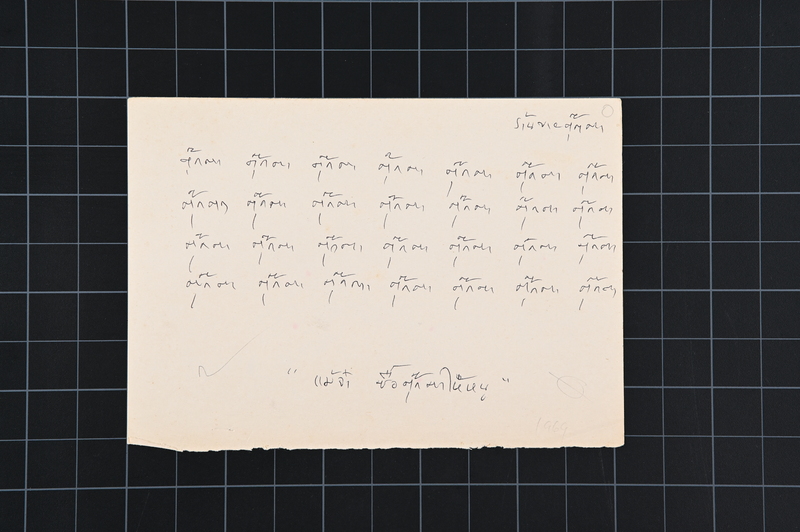 ร้านขายตุ๊กตา
ตุ๊กตา ตุ๊กตา ตุ๊กตา ตุ๊กตา ตุ๊กตา ตุ๊กตา ตุ๊กตา
ตุ๊กตา ตุ๊กตา ตุ๊กตา ตุ๊กตา ตุ๊กตา ตุ๊กตา ตุ๊กตา
ตุ๊กตา ตุ๊กตา ตุ๊กตา ตุ๊กตา ตุ๊กตา ตุ๊กตา ตุ๊กตา
ตุ๊กตา ตุ๊กตา ตุ๊กตา ตุ๊กตา ตุ๊กตา ตุ๊กตา ตุ๊กตา
" แม่จ๋า ซื้อตุ๊กตาให้หนู "
1969